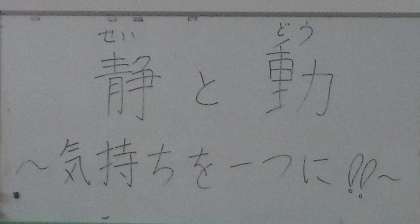 せい どう
静と動
～気持ちを一つに!!～